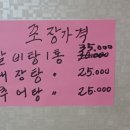 포장가격
갈비탕1통 35.000
내장탕 〃 25.000
추어탕 〃 25.000